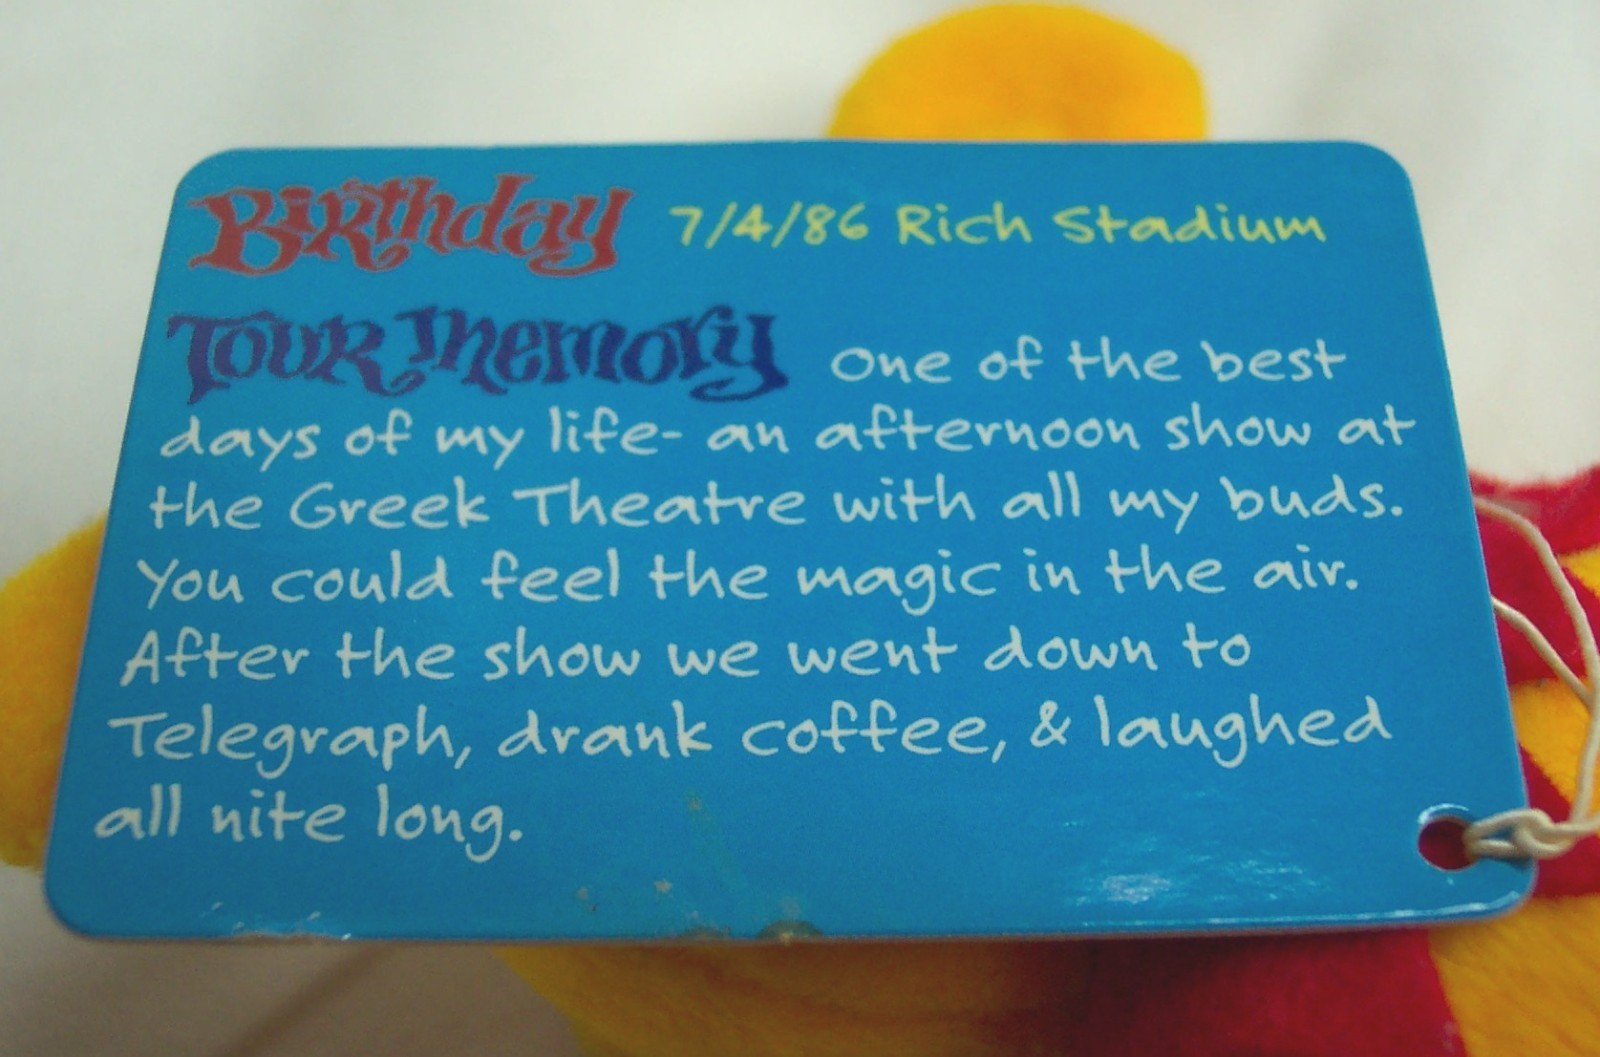 Birthday 7/4/86 Rich Stadium
Tour Memory One of the best
days of my life- an afternoon show at
the Greek Theatre with all my buds.
You could feel the magic in the air.
After the show we went down to
Telegraph, drank coffee, & laughed
all nite long.